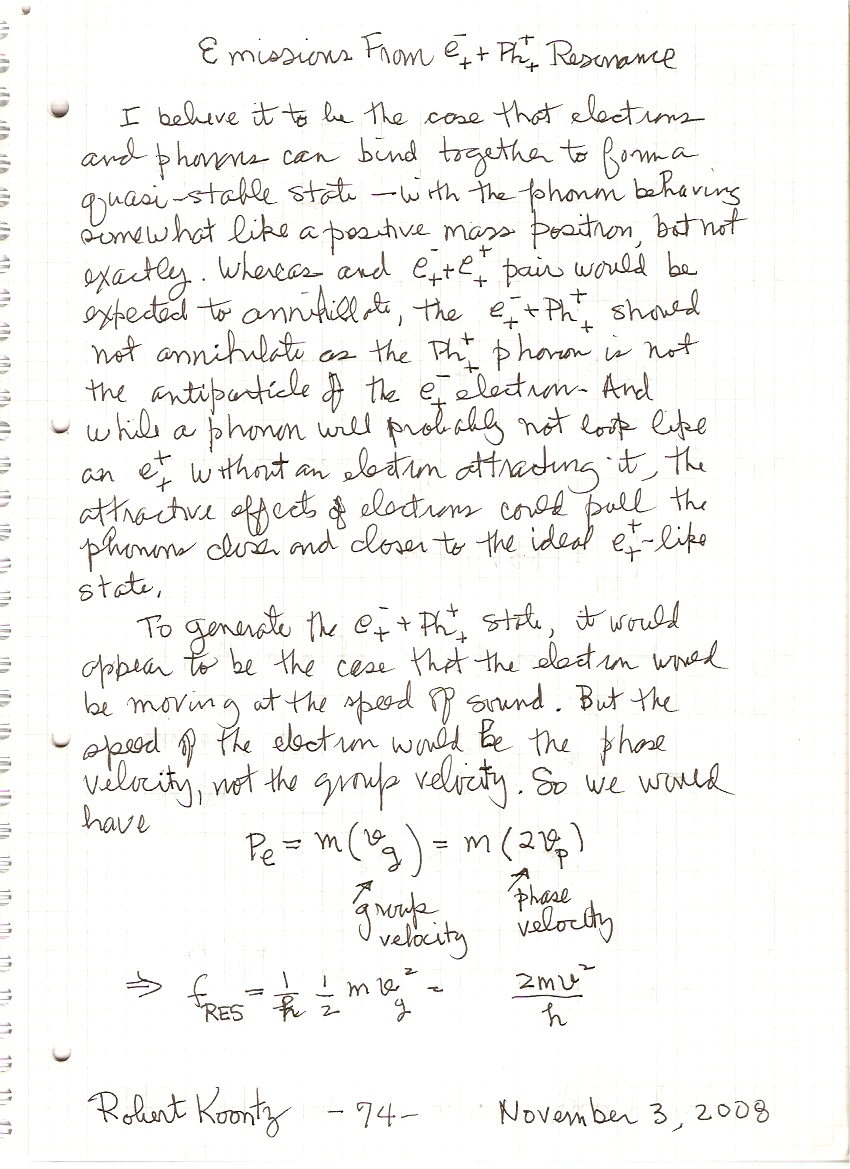 Emissions From e₊⁻ + Ph₊⁺ Resonance
I believe it to be the case that electrons
and phonons can bind together to form a
quasi-stable state — with the phonon behaving
somewhat like a positive mass positron, but not
exactly. Whereas and e₊⁻ + e₊⁺ pair would be
expected to annihillate, the e₊⁻ + Ph₊⁺ should
not annihulate as the Ph₊⁺ phonon is not
the antiparticle of the e₊⁻ electron. And
while a phonon will probably not look like
an e₊⁺ without an electron attracting it, the
attractive effects of electrons could pull the
phonons closer and closer to the ideal e₊⁺-like
state.
To generate the e₊⁻ + Ph₊⁺ state, it would
appear to be the case that the electron would
be moving at the speed of sound. But the
speed of the electron would be the phase
velocity, not the group velocity. So we would
have
Pe = m(v_g) = m(2v_p)
group velocity
phase velocity
⇒ f_RES = 1/h 1/2 m v_g² = 2mv²/h
Robert Koontz - 74 - November 3, 2008